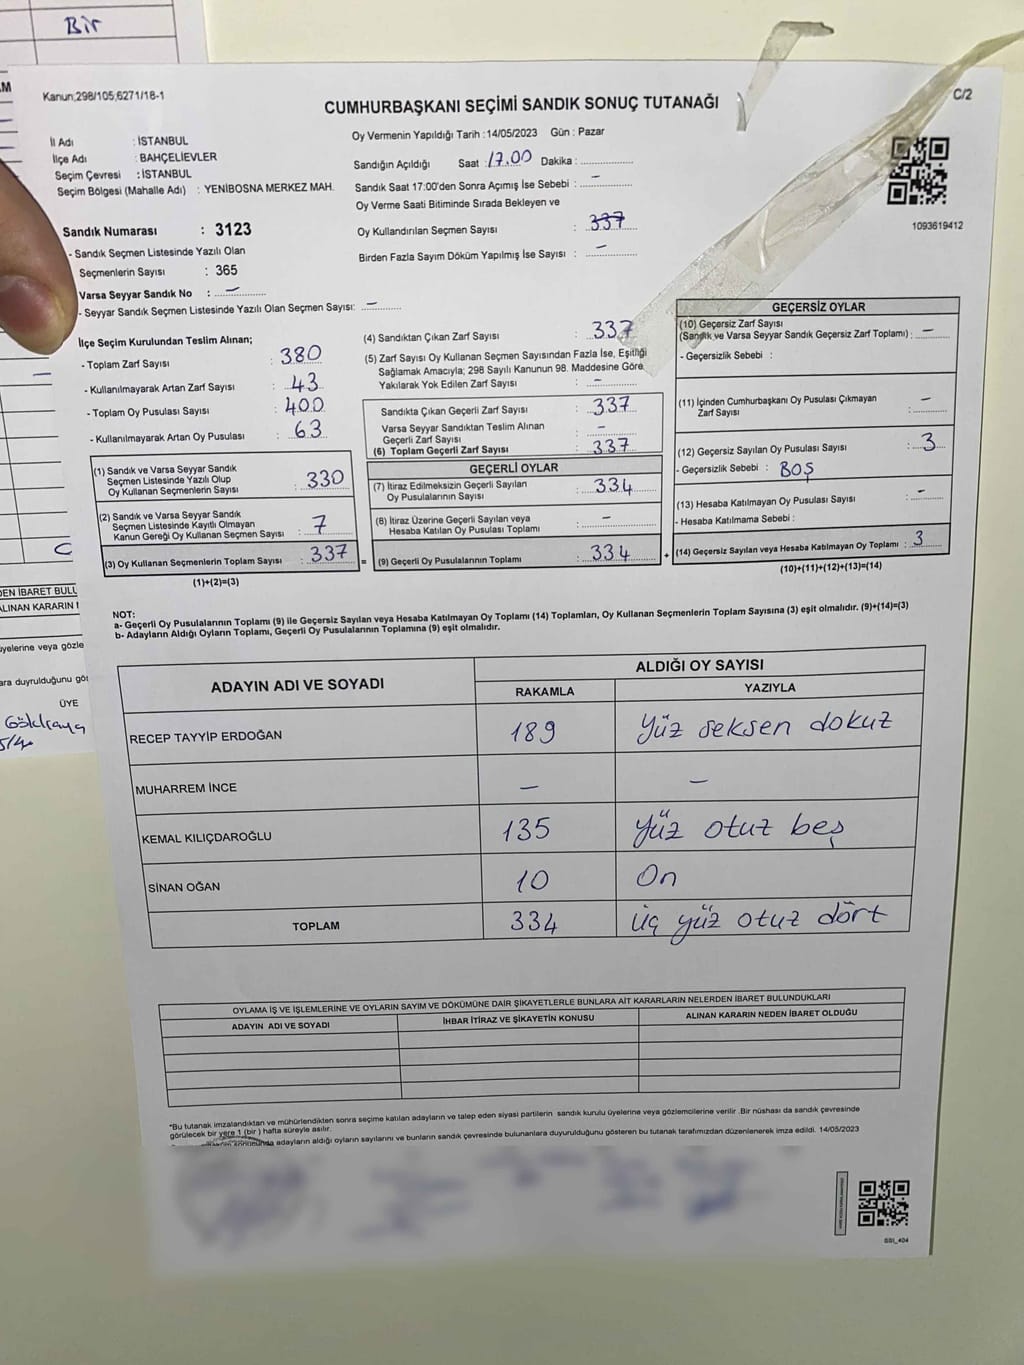 Bir
Kanun;298/105;6271/18-1
CUMHURBAŞKANI SEÇİMİ SANDIK SONUÇ TUTANAĞI
C/2
İl Adı : İSTANBUL
İlçe Adı : BAHÇELİEVLER
Seçim Çevresi : İSTANBUL
Seçim Bölgesi (Mahalle Adı) : YENİBOSNA MERKEZ MAH.
Sandık Numarası : 3123
- Sandık Seçmen Listesinde Yazılı Olan
Seçmenlerin Sayısı : 365
Varsa Seyyar Sandık No : –
- Seyyar Sandık Seçmen Listesinde Yazılı Olan Seçmen Sayısı: –
Oy Vermenin Yapıldığı Tarih :14/05/2023 Gün : Pazar
Sandığın Açıldığı Saat :17.00 Dakika :
Sandık Saat 17:00'den Sonra Açımış İse Sebebi : –
Oy Verme Saati Bitiminde Sırada Bekleyen ve
Oy Kullandırılan Seçmen Sayısı : 337
Birden Fazla Sayım Döküm Yapılmış İse Sayısı : –
1093619412
İlçe Seçim Kurulundan Teslim Alınan;
- Toplam Zarf Sayısı : 380
- Kullanılmayarak Artan Zarf Sayısı : 43
- Toplam Oy Pusulası Sayısı : 400
- Kullanılmayarak Artan Oy Pusulası : 63
(1) Sandık ve Varsa Seyyar Sandık
Seçmen Listesinde Yazılı Olup
Oy Kullanan Seçmenlerin Sayısı : 330
(2) Sandık ve Varsa Seyyar Sandık
Seçmen Listesinde Kayıtlı Olmayan
Kanun Gereği Oy Kullanan Seçmen Sayısı : 7
(3) Oy Kullanan Seçmenlerin Toplam Sayısı : 337
(1)+(2)=(3)
(4) Sandıktan Çıkan Zarf Sayısı : 337
(5) Zarf Sayısı Oy Kullanan Seçmen Sayısından Fazla İse, Eşitliği
Sağlamak Amacıyla; 298 Sayılı Kanunun 98. Maddesine Göre
Yakılarak Yok Edilen Zarf Sayısı : –
Sandıkta Çıkan Geçerli Zarf Sayısı : 337
Varsa Seyyar Sandıktan Teslim Alınan
Geçerli Zarf Sayısı : –
(6) Toplam Geçerli Zarf Sayısı : 337
GEÇERLİ OYLAR
(7) İtiraz Edilmeksizin Geçerli Sayılan
Oy Pusulalarının Sayısı : 334
(8) İtiraz Üzerine Geçerli Sayılan veya
Hesaba Katılan Oy Pusulası Toplamı : –
= (9) Geçerli Oy Pusulalarının Toplamı : 334 +
GEÇERSİZ OYLAR
(10) Geçersiz Zarf Sayısı
(Sandık ve Varsa Seyyar Sandık Geçersiz Zarf Toplamı) : –
- Geçersizlik Sebebi :
(11) İçinden Cumhurbaşkanı Oy Pusulası Çıkmayan
Zarf Sayısı : –
(12) Geçersiz Sayılan Oy Pusulası Sayısı : 3
- Geçersizlik Sebebi : BOŞ
(13) Hesaba Katılmayan Oy Pusulası Sayısı : –
- Hesaba Katılmama Sebebi :
(14) Geçersiz Sayılan veya Hesaba Katılmayan Oy Toplamı : 3
(10)+(11)+(12)+(13)=(14)
NOT:
a- Geçerli Oy Pusulalarının Toplamı (9) ile Geçersiz Sayılan veya Hesaba Katılmayan Oy Toplamı (14) Toplamları, Oy Kullanan Seçmenlerin Toplam Sayısına (3) eşit olmalıdır. (9)+(14)=(3)
b- Adayların Aldığı Oyların Toplamı, Geçerli Oy Pusulalarının Toplamına (9) eşit olmalıdır.
ADAYIN ADI VE SOYADI
ALDIĞI OY SAYISI
RAKAMLA YAZIYLA
RECEP TAYYİP ERDOĞAN 189 Yüz seksen dokuz
MUHARREM İNCE – –
KEMAL KILIÇDAROĞLU 135 Yüz otuz beş
SİNAN OĞAN 10 On
TOPLAM 334 üç yüz otuz dört
OYLAMA İŞ VE İŞLEMLERİNE VE OYLARIN SAYIM VE DÖKÜMÜNE DAİR ŞİKAYETLERLE BUNLARA AİT KARARLARIN NELERDEN İBARET BULUNDUKLARI
ADAYIN ADI VE SOYADI İHBAR İTİRAZ VE ŞİKAYETİN KONUSU ALINAN KARARIN NEDEN İBARET OLDUĞU
*Bu tutanak imzalandıktan ve mühürlendikten sonra seçime katılan adayların ve talep eden siyasi partilerin sandık kurulu üyelerine veya gözlemcilerine verilir .Bir nüshası da sandık çevresinde
görülecek bir yere 1 (bir ) hafta süreyle asılır.
adayların aldığı oyların sayılarını ve bunların sandık çevresinde bulunanlara duyurulduğunu gösteren bu tutanak tarafımızdan düzenlenerek imza edildi. 14/05/2023
DEN İBARET BULU
ALINAN KARARIN
üyelerine veya gözle
ara duyrulduğunu gö
ÜYE